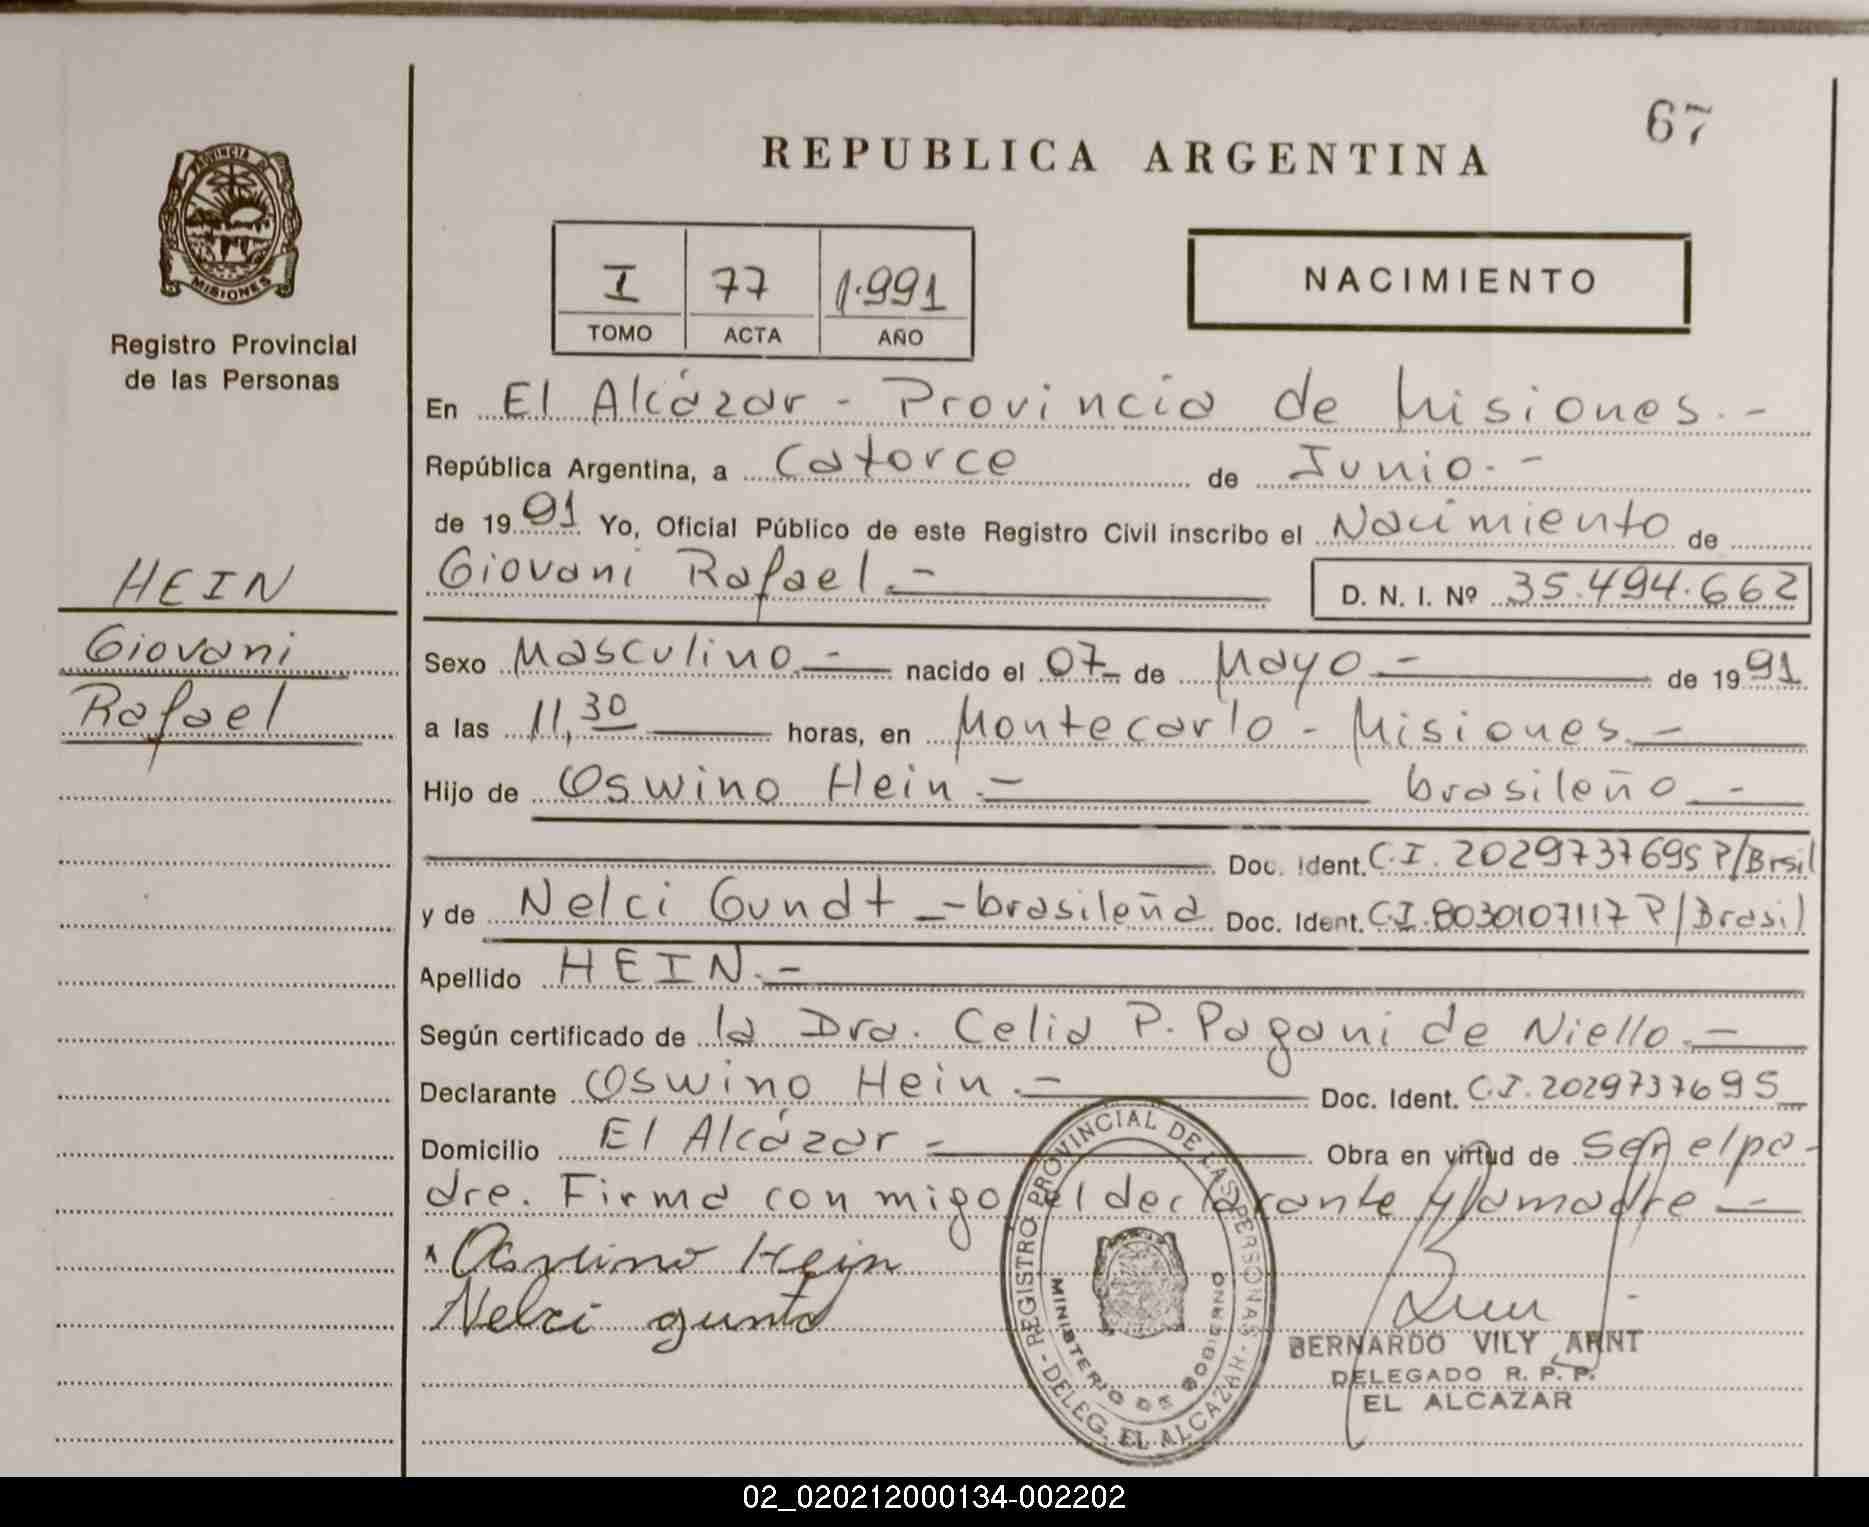 67
REPUBLICA ARGENTINA
PROVINCIA DE
MISIONES
Registro Provincial
de las Personas
I 77 1.991
TOMO ACTA AÑO
NACIMIENTO
En El Alcázar - Provincia de Misiones.-
República Argentina, a Catorce de Junio.-
de 1991 Yo, Oficial Público de este Registro Civil inscribo el Nacimiento de
Giovani Rafael.-
D. N. I. Nº 35.494.662
HEIN
Giovani
Rafael
Sexo Masculino.- nacido el 07 de Mayo - de 1991
a las 11,30 horas, en Montecarlo - Misiones.-
Hijo de Oswino Hein.- brasileño.-
Doc. Ident. C.I. 2029737695 P/Brsil
y de Nelci Gundt - brasileña Doc. Ident. C.I. 8030107117 P/Brasil
Apellido HEIN.-
Según certificado de la Dra. Celia P. Pagani de Niello.-
Declarante Oswino Hein.- Doc. Ident. C.I. 2029737695
Domicilio El Alcázar - Obra en virtud de ser el pa-
dre. Firma con migo el declarante y la madre -
Oswino Hein
Nelci
REGISTRO PROVINCIAL DE LAS PERSONAS - DELEG. EL ALCAZAR -
MINISTERIO DE GOBIERNO
BERNARDO VILY ARNT
DELEGADO R. P. P.
EL ALCAZAR
02_020212000134-002202